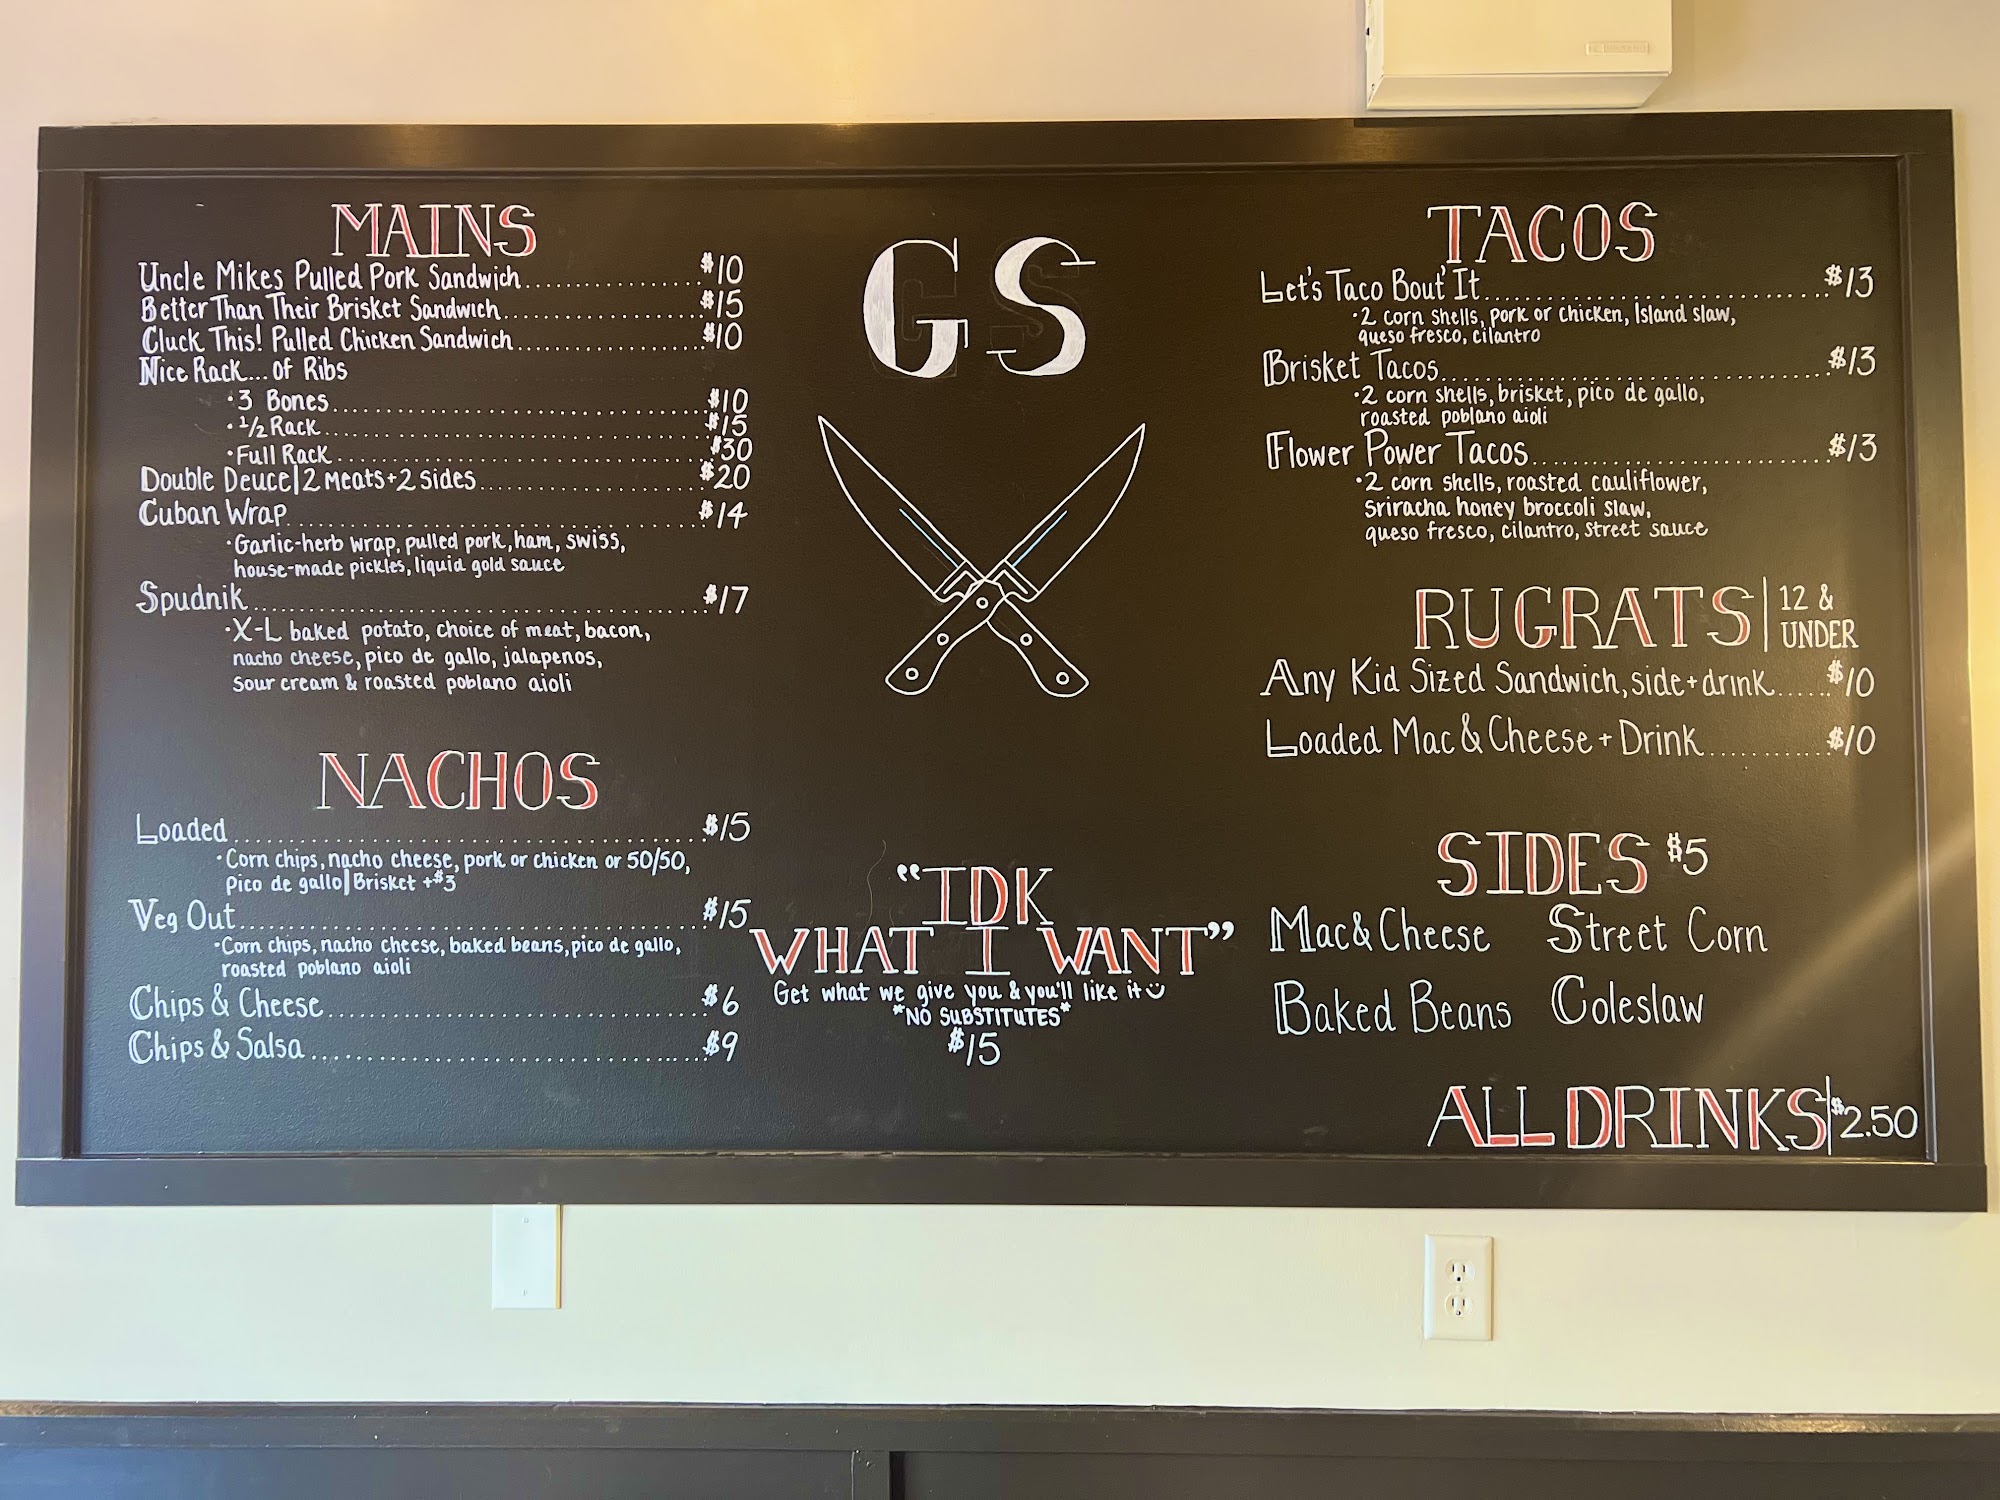 MAINS
Uncle Mikes Pulled Pork Sandwich.................$10
Better Than Their Brisket Sandwich.................$15
Cluck This! Pulled Chicken Sandwich.................$10
Nice Rack... of Ribs
·3 Bones.................$10
·1/2 Rack.................$15
·Full Rack.................$30
Double Deuce|2 Meats+2 sides.................$20
Cuban Wrap.................$14
·Garlic-herb wrap, pulled pork, ham, swiss,
house-made pickles, liquid gold sauce
Spudnik.................$17
·X-L baked potato, choice of meat, bacon,
nacho cheese, pico de gallo, jalapenos,
sour cream & roasted poblano aioli
NACHOS
Loaded.................$15
·Corn chips, nacho cheese, pork or chicken or 50/50,
pico de gallo|Brisket +$3
Veg Out.................$15
·Corn chips, nacho cheese, baked beans, pico de gallo,
roasted poblano aioli
Chips & Cheese.................$6
Chips & Salsa.................$9
GS
"IDK
WHAT I WANT"
Get what we give you & you'll like it
*NO SUBSTITUTES*
$15
TACOS
Let's Taco Bout' It.................$13
·2 corn shells, pork or chicken, Island slaw,
queso fresco, cilantro
Brisket Tacos.................$13
·2 corn shells, brisket, pico de gallo,
roasted poblano aioli
Flower Power Tacos.................$13
·2 corn shells, roasted cauliflower,
sriracha honey broccoli slaw,
queso fresco, cilantro, street sauce
RUGRATS | 12 &
UNDER
Any Kid Sized Sandwich, side + drink......$10
Loaded Mac & Cheese + Drink...........$10
SIDES $5
Mac & Cheese Street Corn
Baked Beans Coleslaw
ALL DRINKS|$2.50